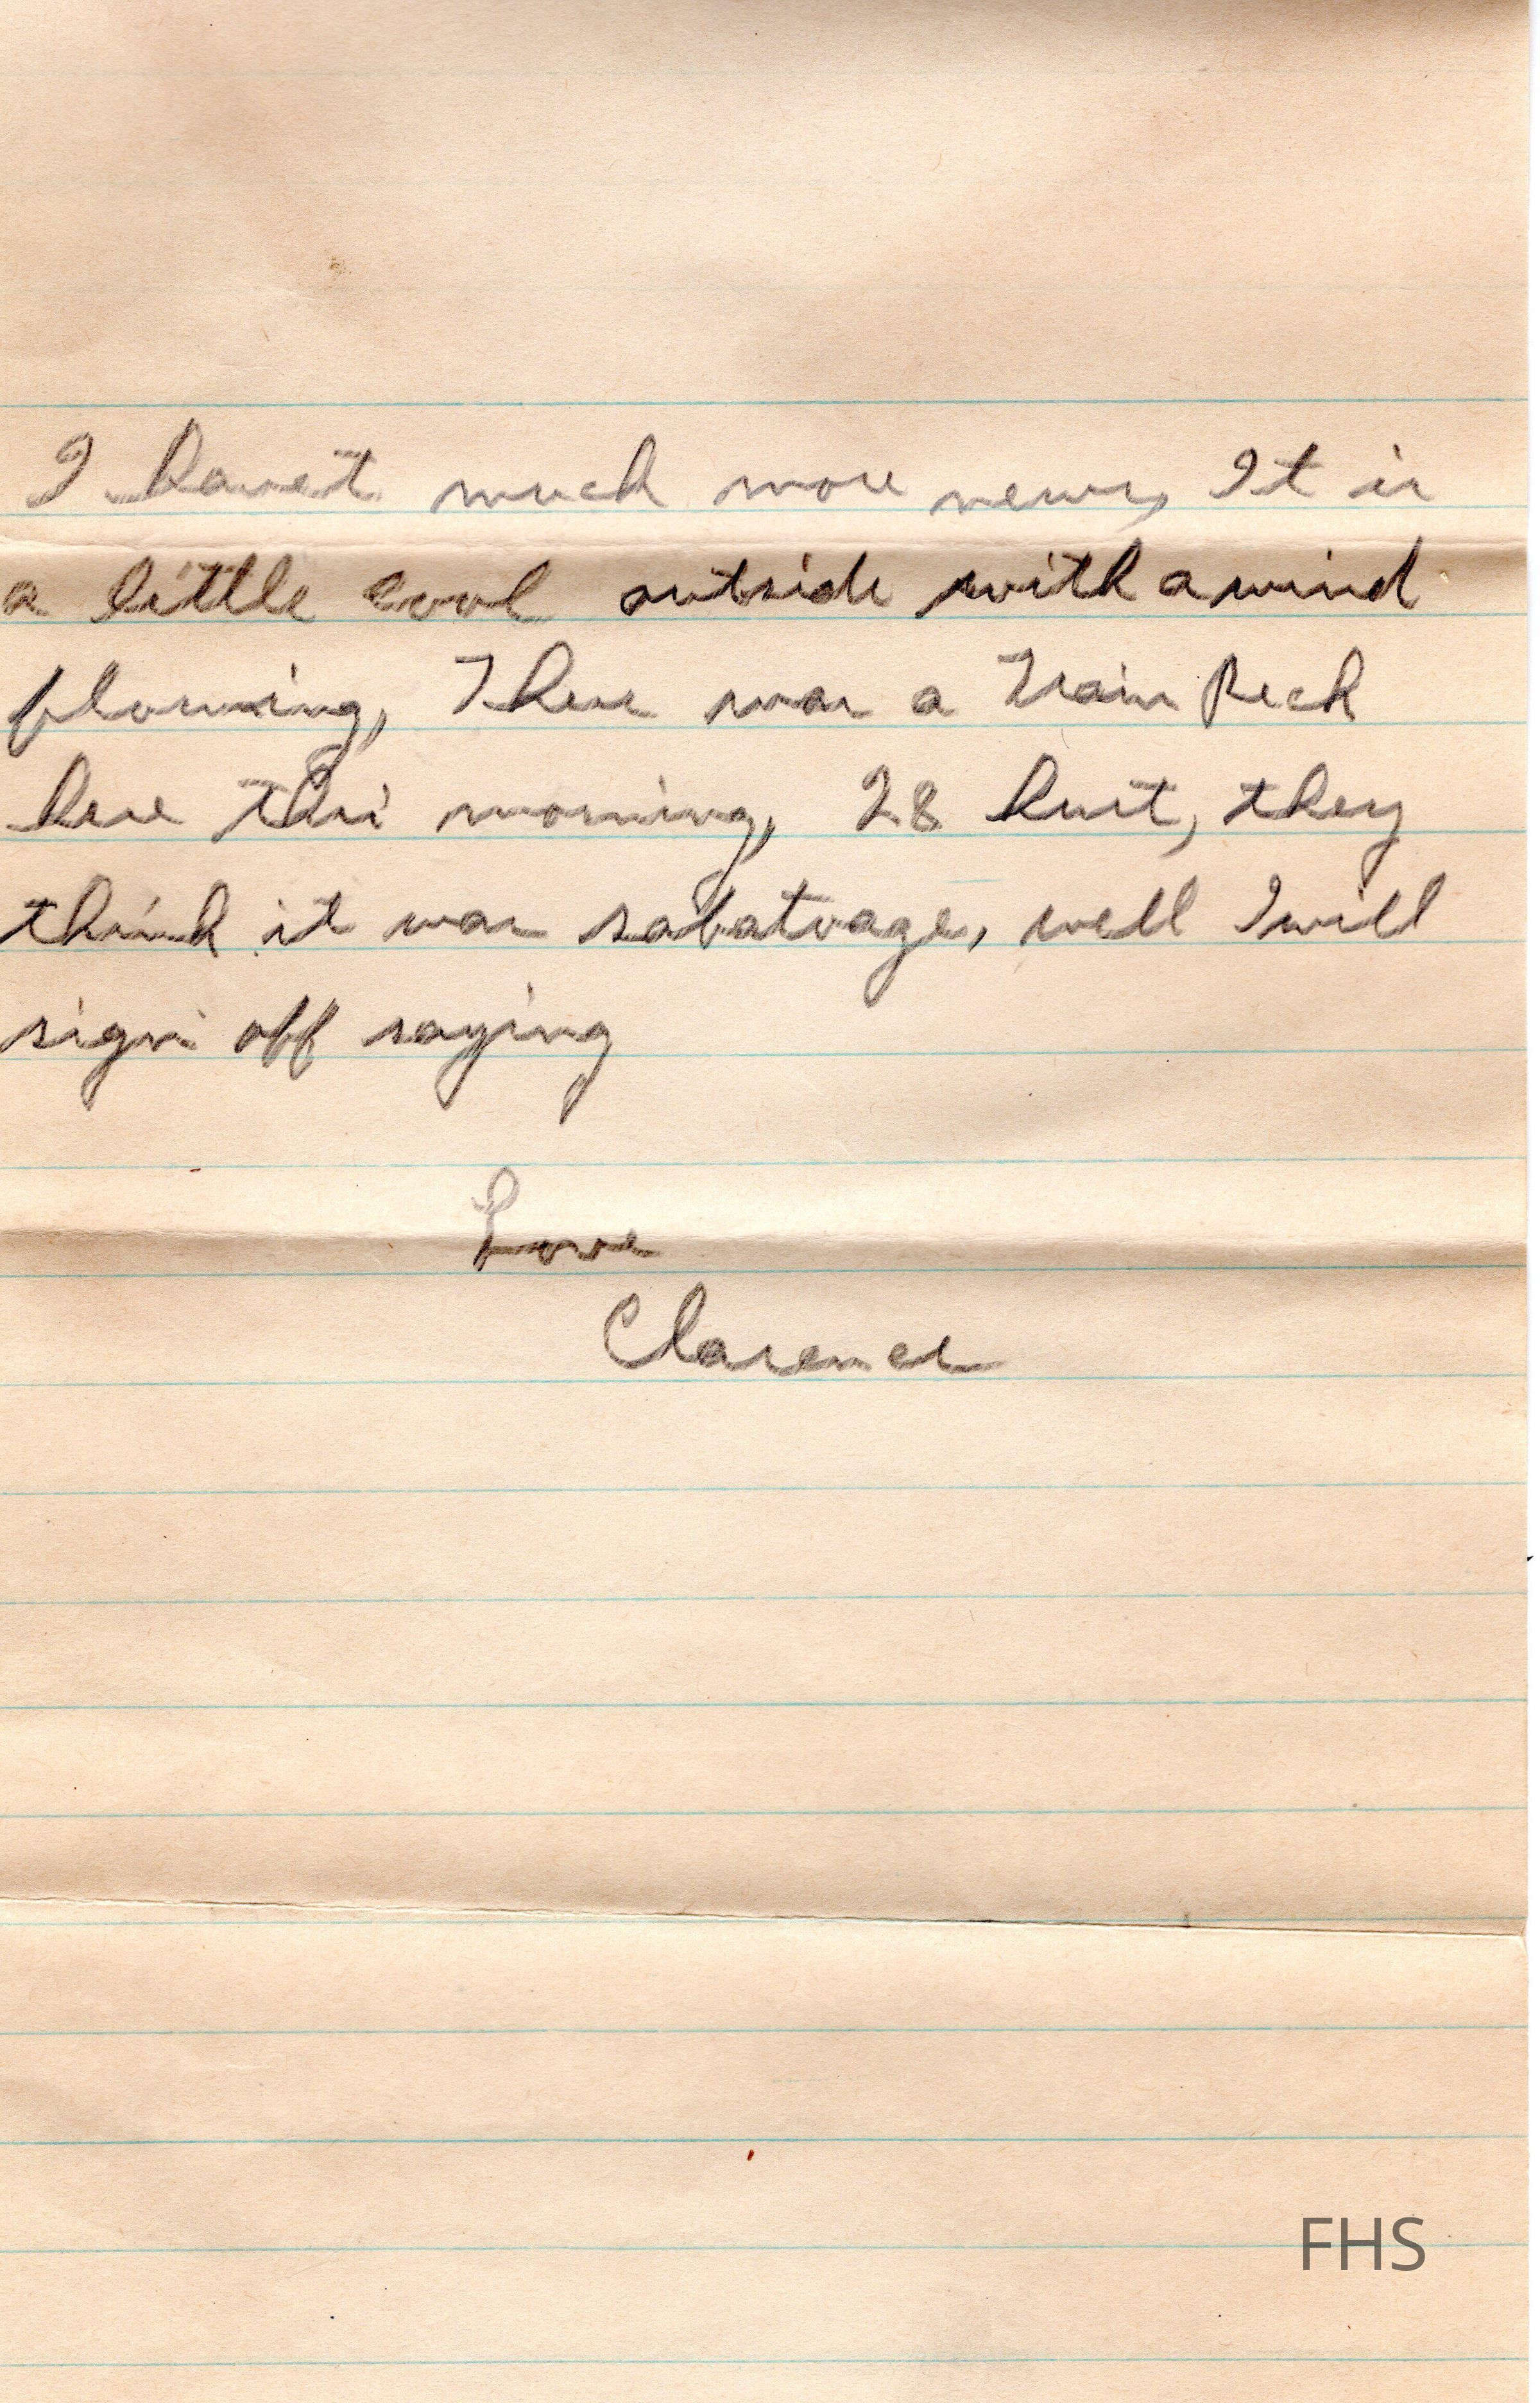 I havet much more news, It is
a little cool outside with a wind
plowing, There was a Train Reck
here this morning, 28 hurt, they
think it was sabatoage, well I will
sign off saying
Love
Clarence
FHS